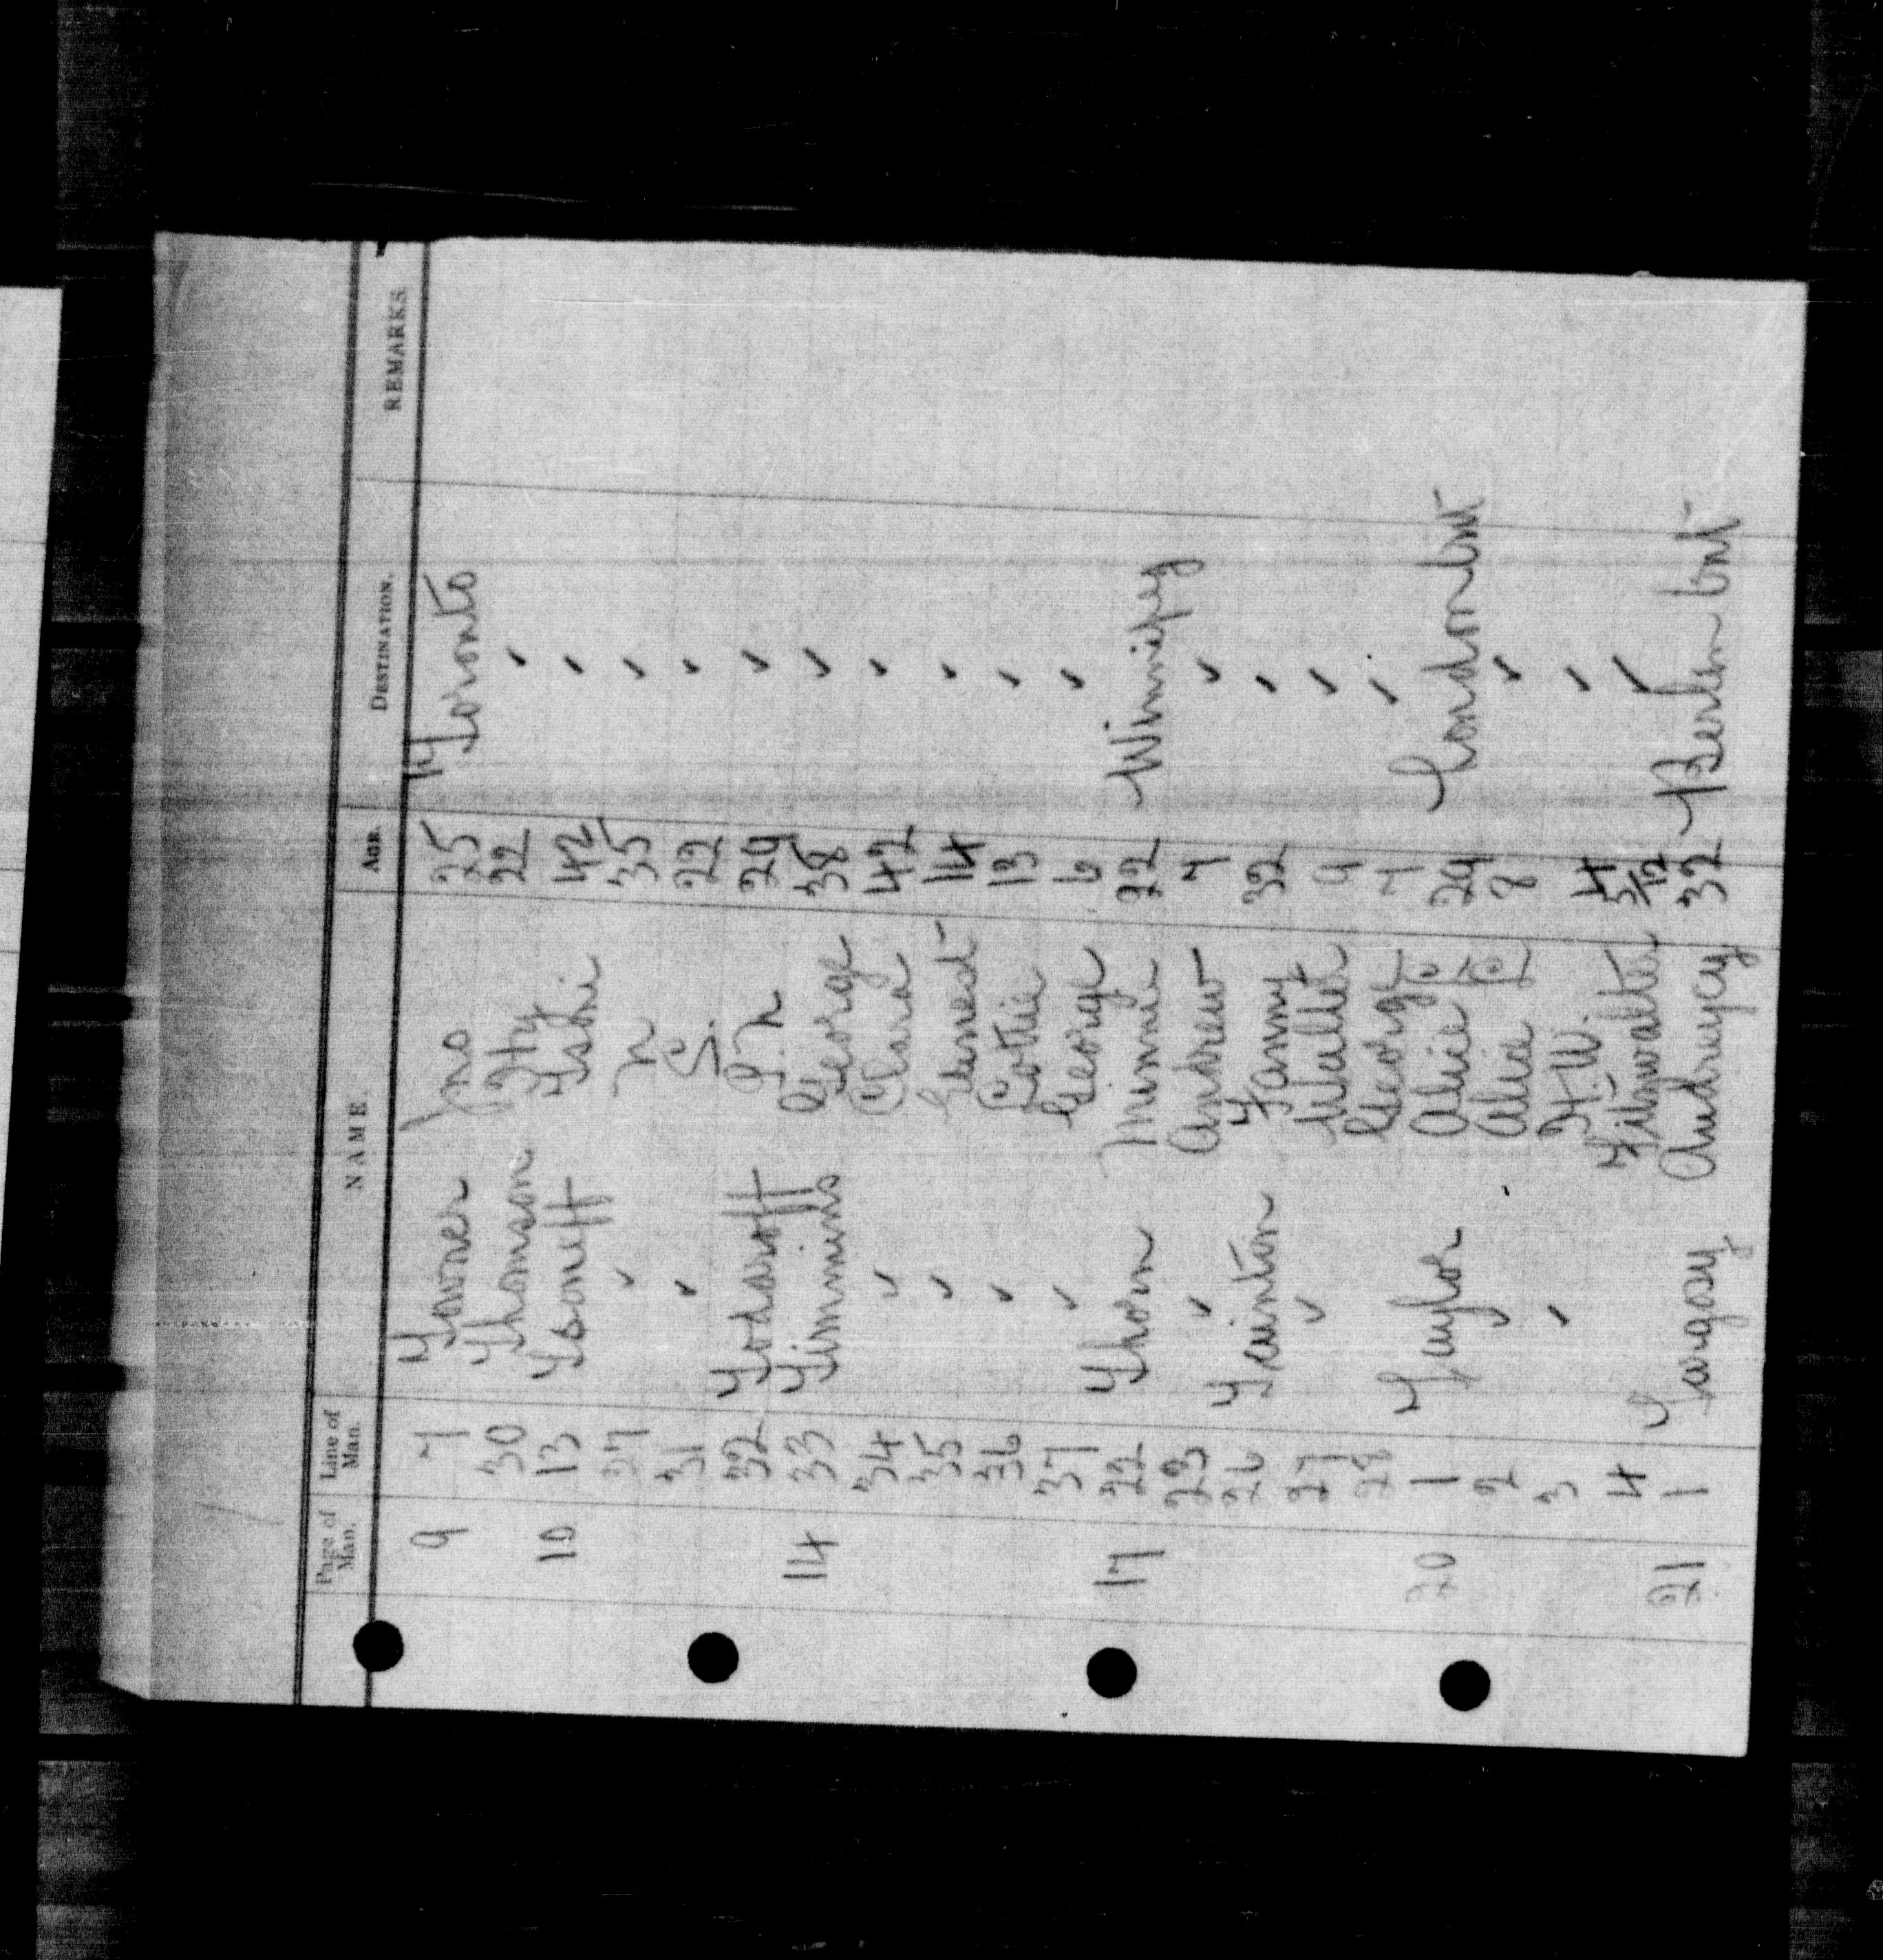 Page of Man. Line of Man. NAME. AGE. DESTINATION. REMARKS.
9 7 Towner Jno 25 Toronto
30 Thomson Hy 22 ✓
10 13 Tsoneff Tsoni 42 ✓
27 ✓ N 35 ✓
31 ✓ S. 22 ✓
32 Todaroff P.N 29 ✓
14 33 Timmins George 38 ✓
34 ✓ Clara 42 ✓
35 ✓ Ernest 14 ✓
36 ✓ Lottie 13 ✓
37 ✓ George 6 ✓
17 22 Thorn Minnie 22 Winnipeg
23 ✓ Andrew 7 ✓
26 Tainton Fanny 32 ✓
27 ✓ Walter 9 ✓
28 George 7 ✓
20 1 Taylor Alice E 29 London Ont
2 ✓ Alice E 8 ✓
3 ✓ F.W. 4 ✓
4 Fitzwalter 3/12 ✓
21 1 Targosy 32 Berlin Ont